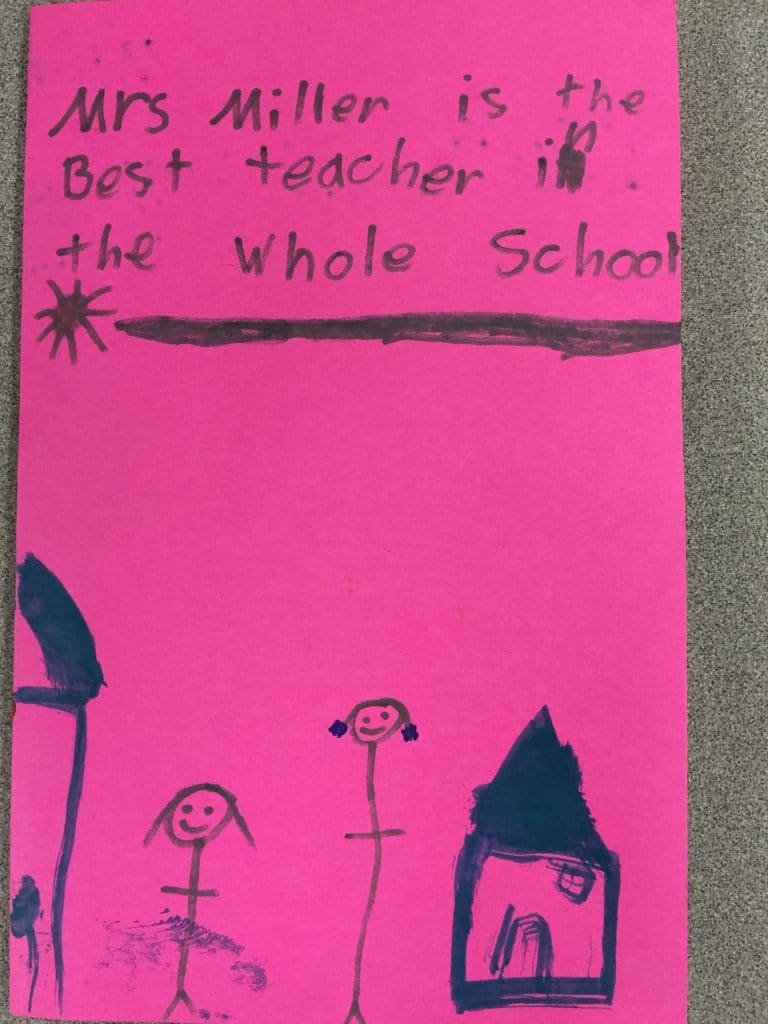 Mrs Miller is the
Best teacher in
the Whole School